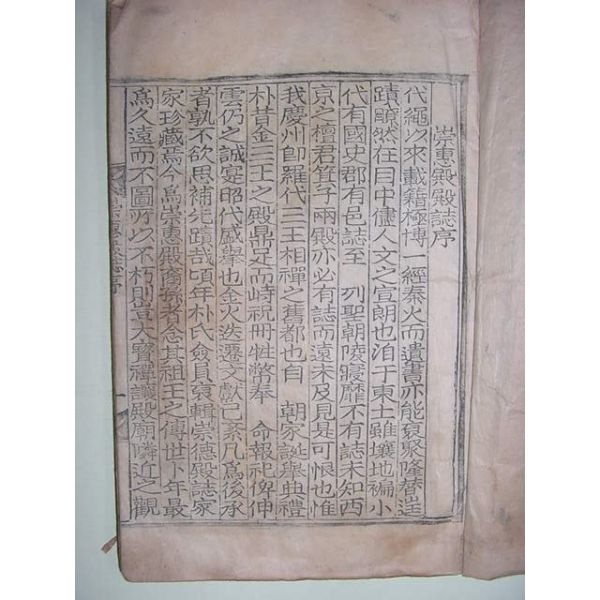 崇惠殿殿誌序
代繩以來載籍極博一經秦火而遺書亦能裒聚隆替
蹟瞭然在目中儘人文之宣朗也洎于東土雖壤地褊小
代有國史郡有邑誌至 列聖朝陵寢靡不有誌未知西
京之檀君箕子兩殿亦必有誌而遠未及見是可恨也惟
我慶州卽羅代三王相禪之舊都也自 朝家誕擧典禮
朴昔金三王之殿鼎足而峙祝冊牲幣奉 命報祀俾伸
雲仍之誠寔昭代盛擧也金火迭遷文獻已紊凡爲後承
者孰不欲思補先蹟哉頃年朴氏僉員裒輯崇德殿誌家
家珍藏焉今爲崇惠殿裔孫者念其祖王之傳世卜年最
爲久遠而不圖所以不朽則豈大寶禪讓殿廟隣近之觀
崇惠殿誌序